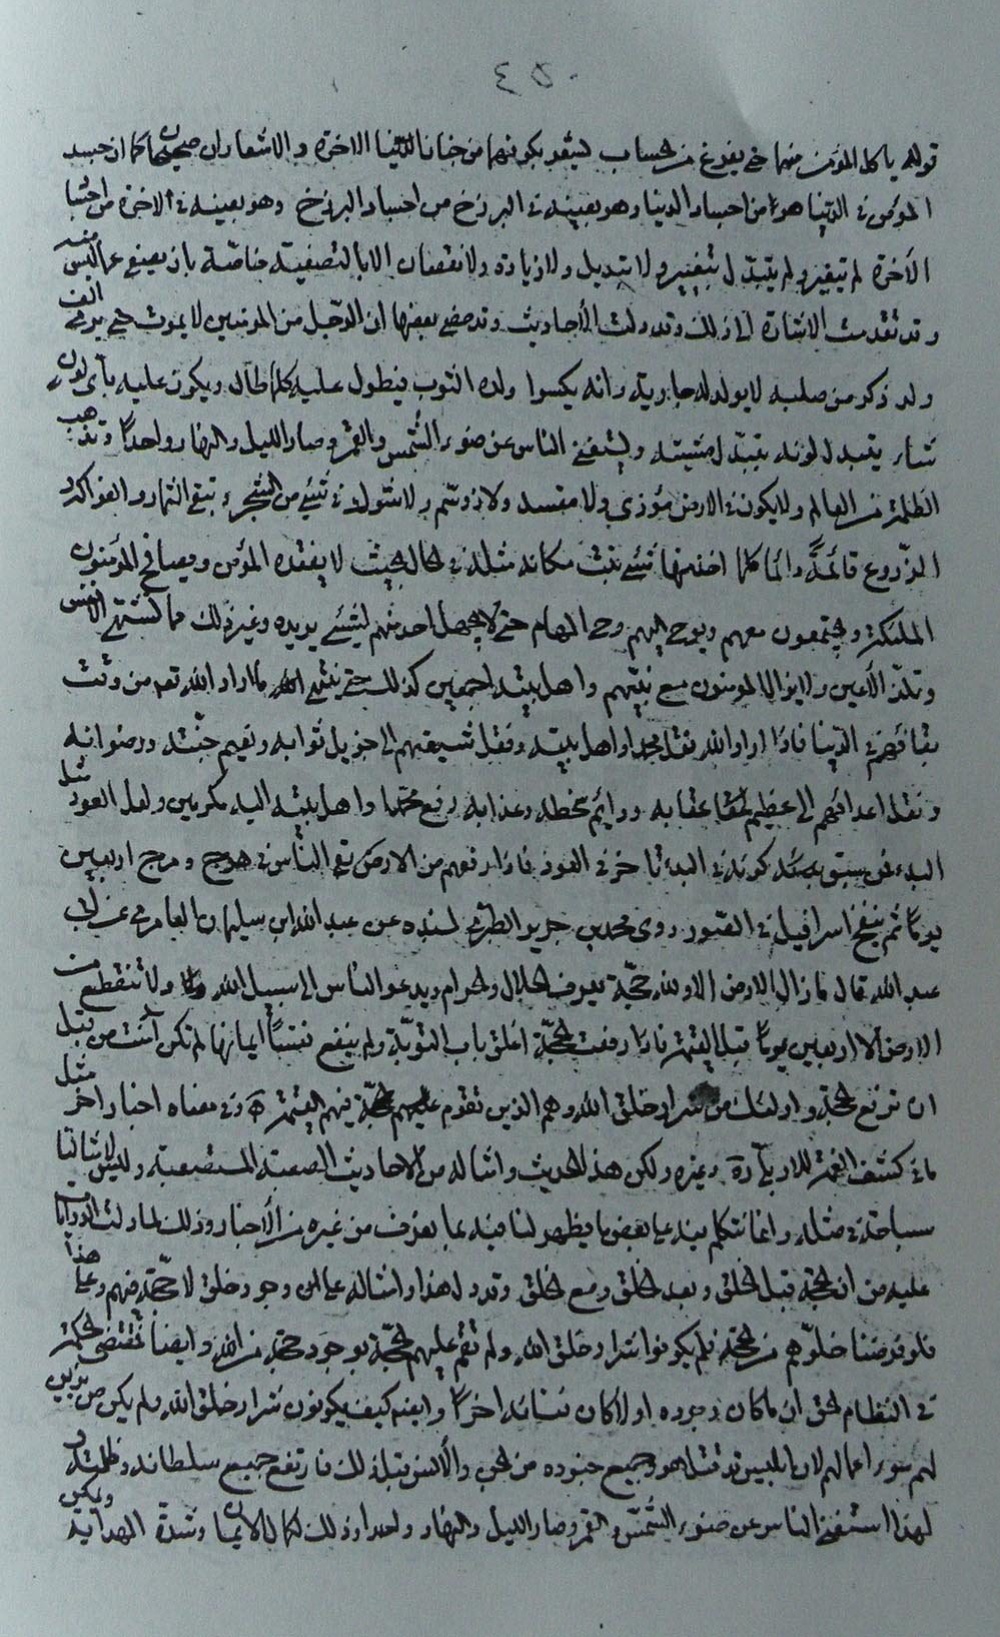 ٤٥٠
قوله يأكل المؤمن منها حتى يفرغ من الحساب ليشعر بكونها من جنان الدنيا الآخرة والاشعاران صحيحان كما ان جسد
المؤمن في الدنيا هو من اجساد الدنيا وهو بعينه في البرزخ من اجساد البرزخ وهو بعينه في الآخرة من اجساد
الآخرة لم يتغير ولم يتبدل بتغيير ولا تبديل ولا زيادة ولا نقصان الا بالتصفية خاصة بان يصفى عما ليس منه
وقد تقدمت الاشارة الى ذلك وقد دلت الأحاديث وقد مضى بعضها ان الرجل من المؤمنين لا يموت حتى يرى الف
ولد ذكر من صلبه لا يولد له جارية وانه يكسوا ولده الثوب فيطول عليه كلما طال ويكون عليه بأى لون
شاء يتبدل لونه بتبدل مشيته ويستغني الناس عن ضوء الشمس والقمر وصار الليل والنهار واحدا وتذهب
الظلمة من العالم ولا يكون في الارض مؤذي ولا مفسد ولا ذو سم ولا شوك في شيء من الشجر وتبقى الثمار والفواكه و
الزروع قائمة دائما كلما اخذ منها شيء نبت مكانه مثله في الحال بحيث لا يفقده المؤمن ويصافح المؤمنون
الملئكة ويجتمعون معهم ويوحى اليهم وحى الهام حتى لا يجهل احد منهم لشيء يريده وغير ذلك مما تشتهي الانفس
وتلذ الأعين ولا يزال المؤمنون مع نبيهم واهل بيته اجمعين كذلك حتى ينتهى الى ما اراد الله تعه من وقت
بقائهم في الدنيا فاذا اراد الله نقل محمد واهل بيته ونقل شيعتهم الى جزيل ثوابه ونعيم جنته ورضوانه
ونقل اعدائهم الى عظيم عقابه ودائم سخطه وعذابه رفع محمدا واهل بيته اليه مكرمين ولعل العود مثل
البدء فمن سبق كونه في البدء تأخر في العود فاذا رفعهم من الارض بقى الناس في هرج ومرج اربعين
يوما ثم ينفخ اسرافيل في القبور روى محمد بن جرير الطبرى بسنده عن عبد الله ابن سليمان العامرى عن ابى
عبد الله قال ما زال الارض الا ولله حجة يعرف الحلال والحرام ويدعو الناس الى سبيل الله ولا تنقطع من
الارض الا اربعين يوما قبل القيمة فاذا رفعت الحجة اغلق باب التوبة ولم ينفع نفسا ايمانها لم تكن آمنت من قبل
ان ترفع الحجة واولئك من شرار خلق الله وهم الذين تقوم عليهم القيمة وفى معناه اخبار اخر مثل
ما في كشف الغمة للاربلي وغيره ولكن هذا الحديث وامثاله من الاحاديث الصعبة المستصعبة وليس لامثالنا
سباحة في مثله وانما نتكلم فيه على بعض ما يظهر لنا فيه بما يعرف من غيره من الأخبار وذلك لما دلت الروايات
عليه من ان الحجة قبل الخلق وبعد الخلق ومع الخلق وقد دل هذا وامثاله على وجود خلق لا حجة فيهم وعلى هذا
فلو فرضنا خلوهم من الحجة فلم يكونوا شرار خلق الله ولم تقم عليهم الحجة بوجود حجة من الله وايضا تقتضى الحكمة
في النظام الحق ان ما كان وجوده اولا كان فنائه اخرا وايضا كيف يكونون شرار خلق الله ولم يكن من يزين
لهم سوء اعمالهم لان ابليس قد قتل هو وجميع جنوده من الجن والأنس قبل ذلك فارتفع جميع سلطانه وظلمته و
لهذا استغنى الناس عن ضوء الشمس والقمر وصار الليل والنهار واحدا وذلك لكمال الايمان وشدة الهداية ويمكن